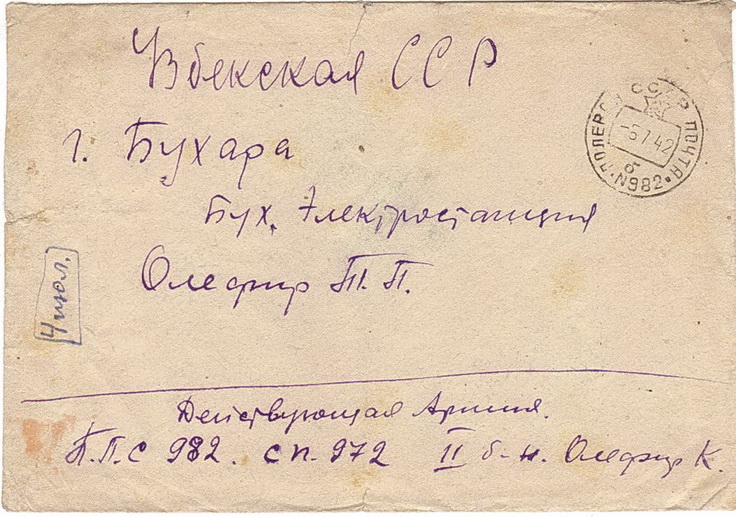 Узбекская ССР
г. Бухара
Бух. Электростанция
Олефир Т. П.
4 июл.
Действующая Армия.
П.П.С 982. сп. 972 II б-н. Олефир К.
СССР ПОЛЕВАЯ ПОЧТА
-6.7.42
б
N982